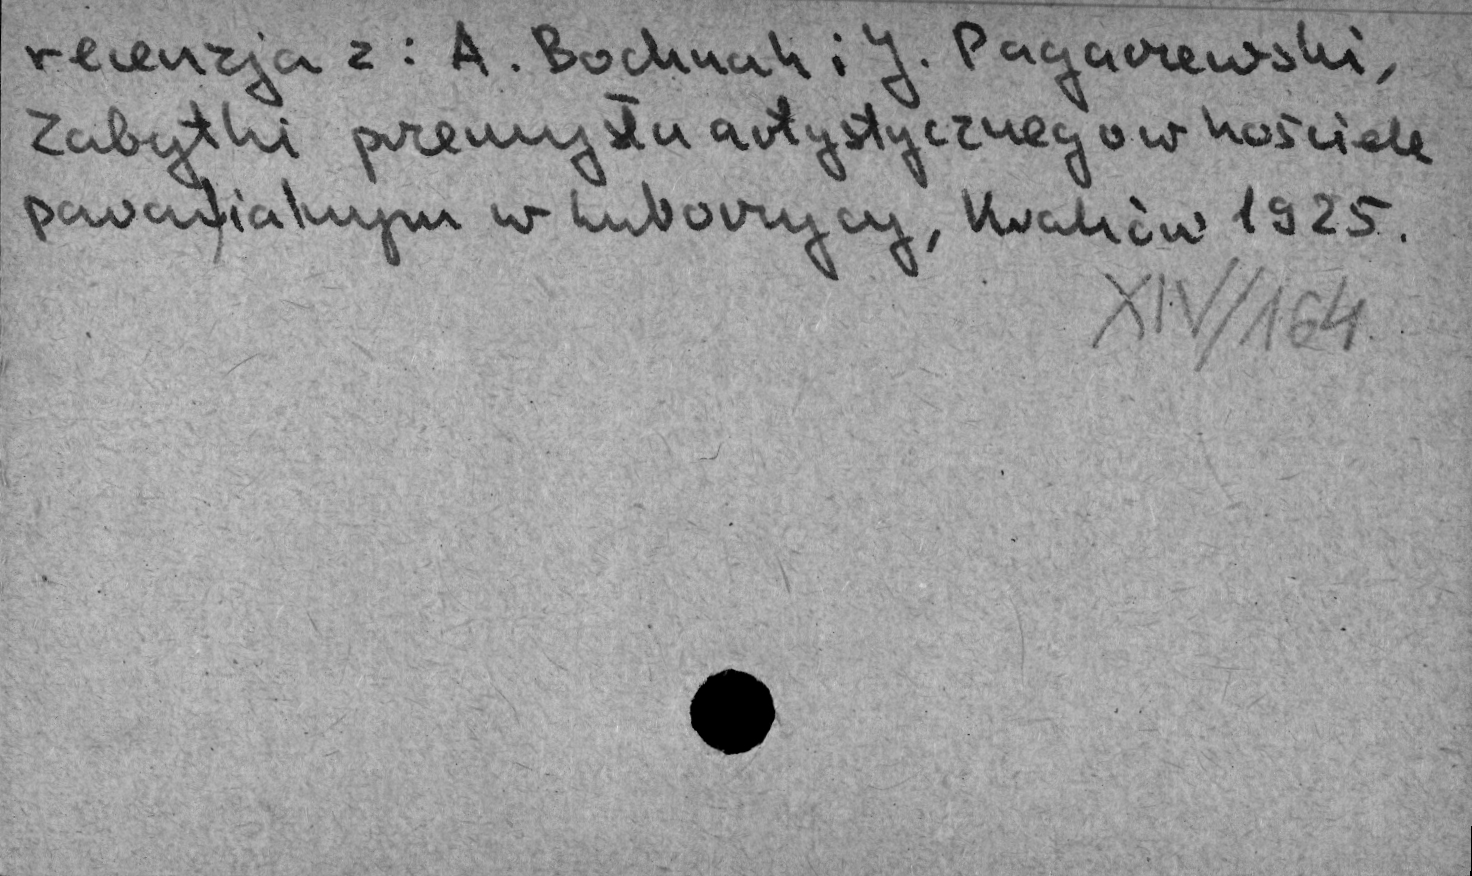 recenzja z: A. Bochnak i J. Pagaczewski,
Zabytki przemysłu artystycznego w kościele
parafialnym w Luborzycy, Kraków 1925.
XIV/164